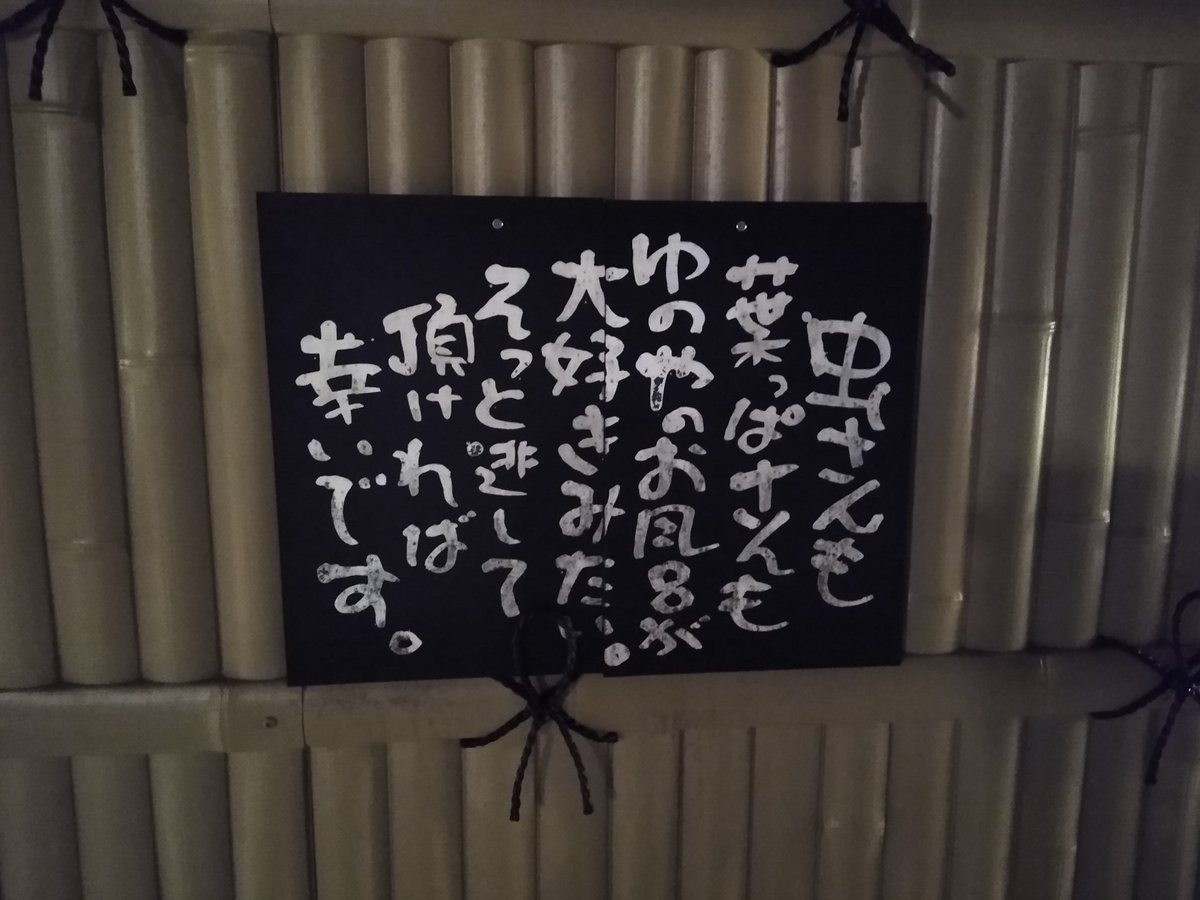 虫さんも
葉っぱさんも
ゆのやのお風呂が
大好きみたい。
そっと逃して
頂ければ
幸いです。